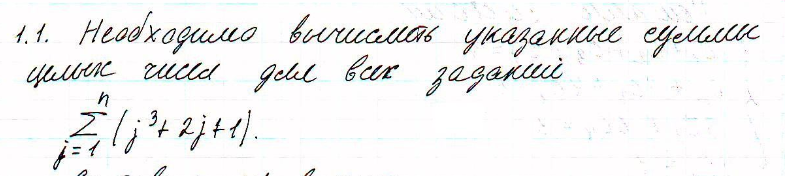 1.1. Необходимо вычислить указанные суммы
целых чисел для всех заданий
n
∑ (j³+2j+1).
j=1